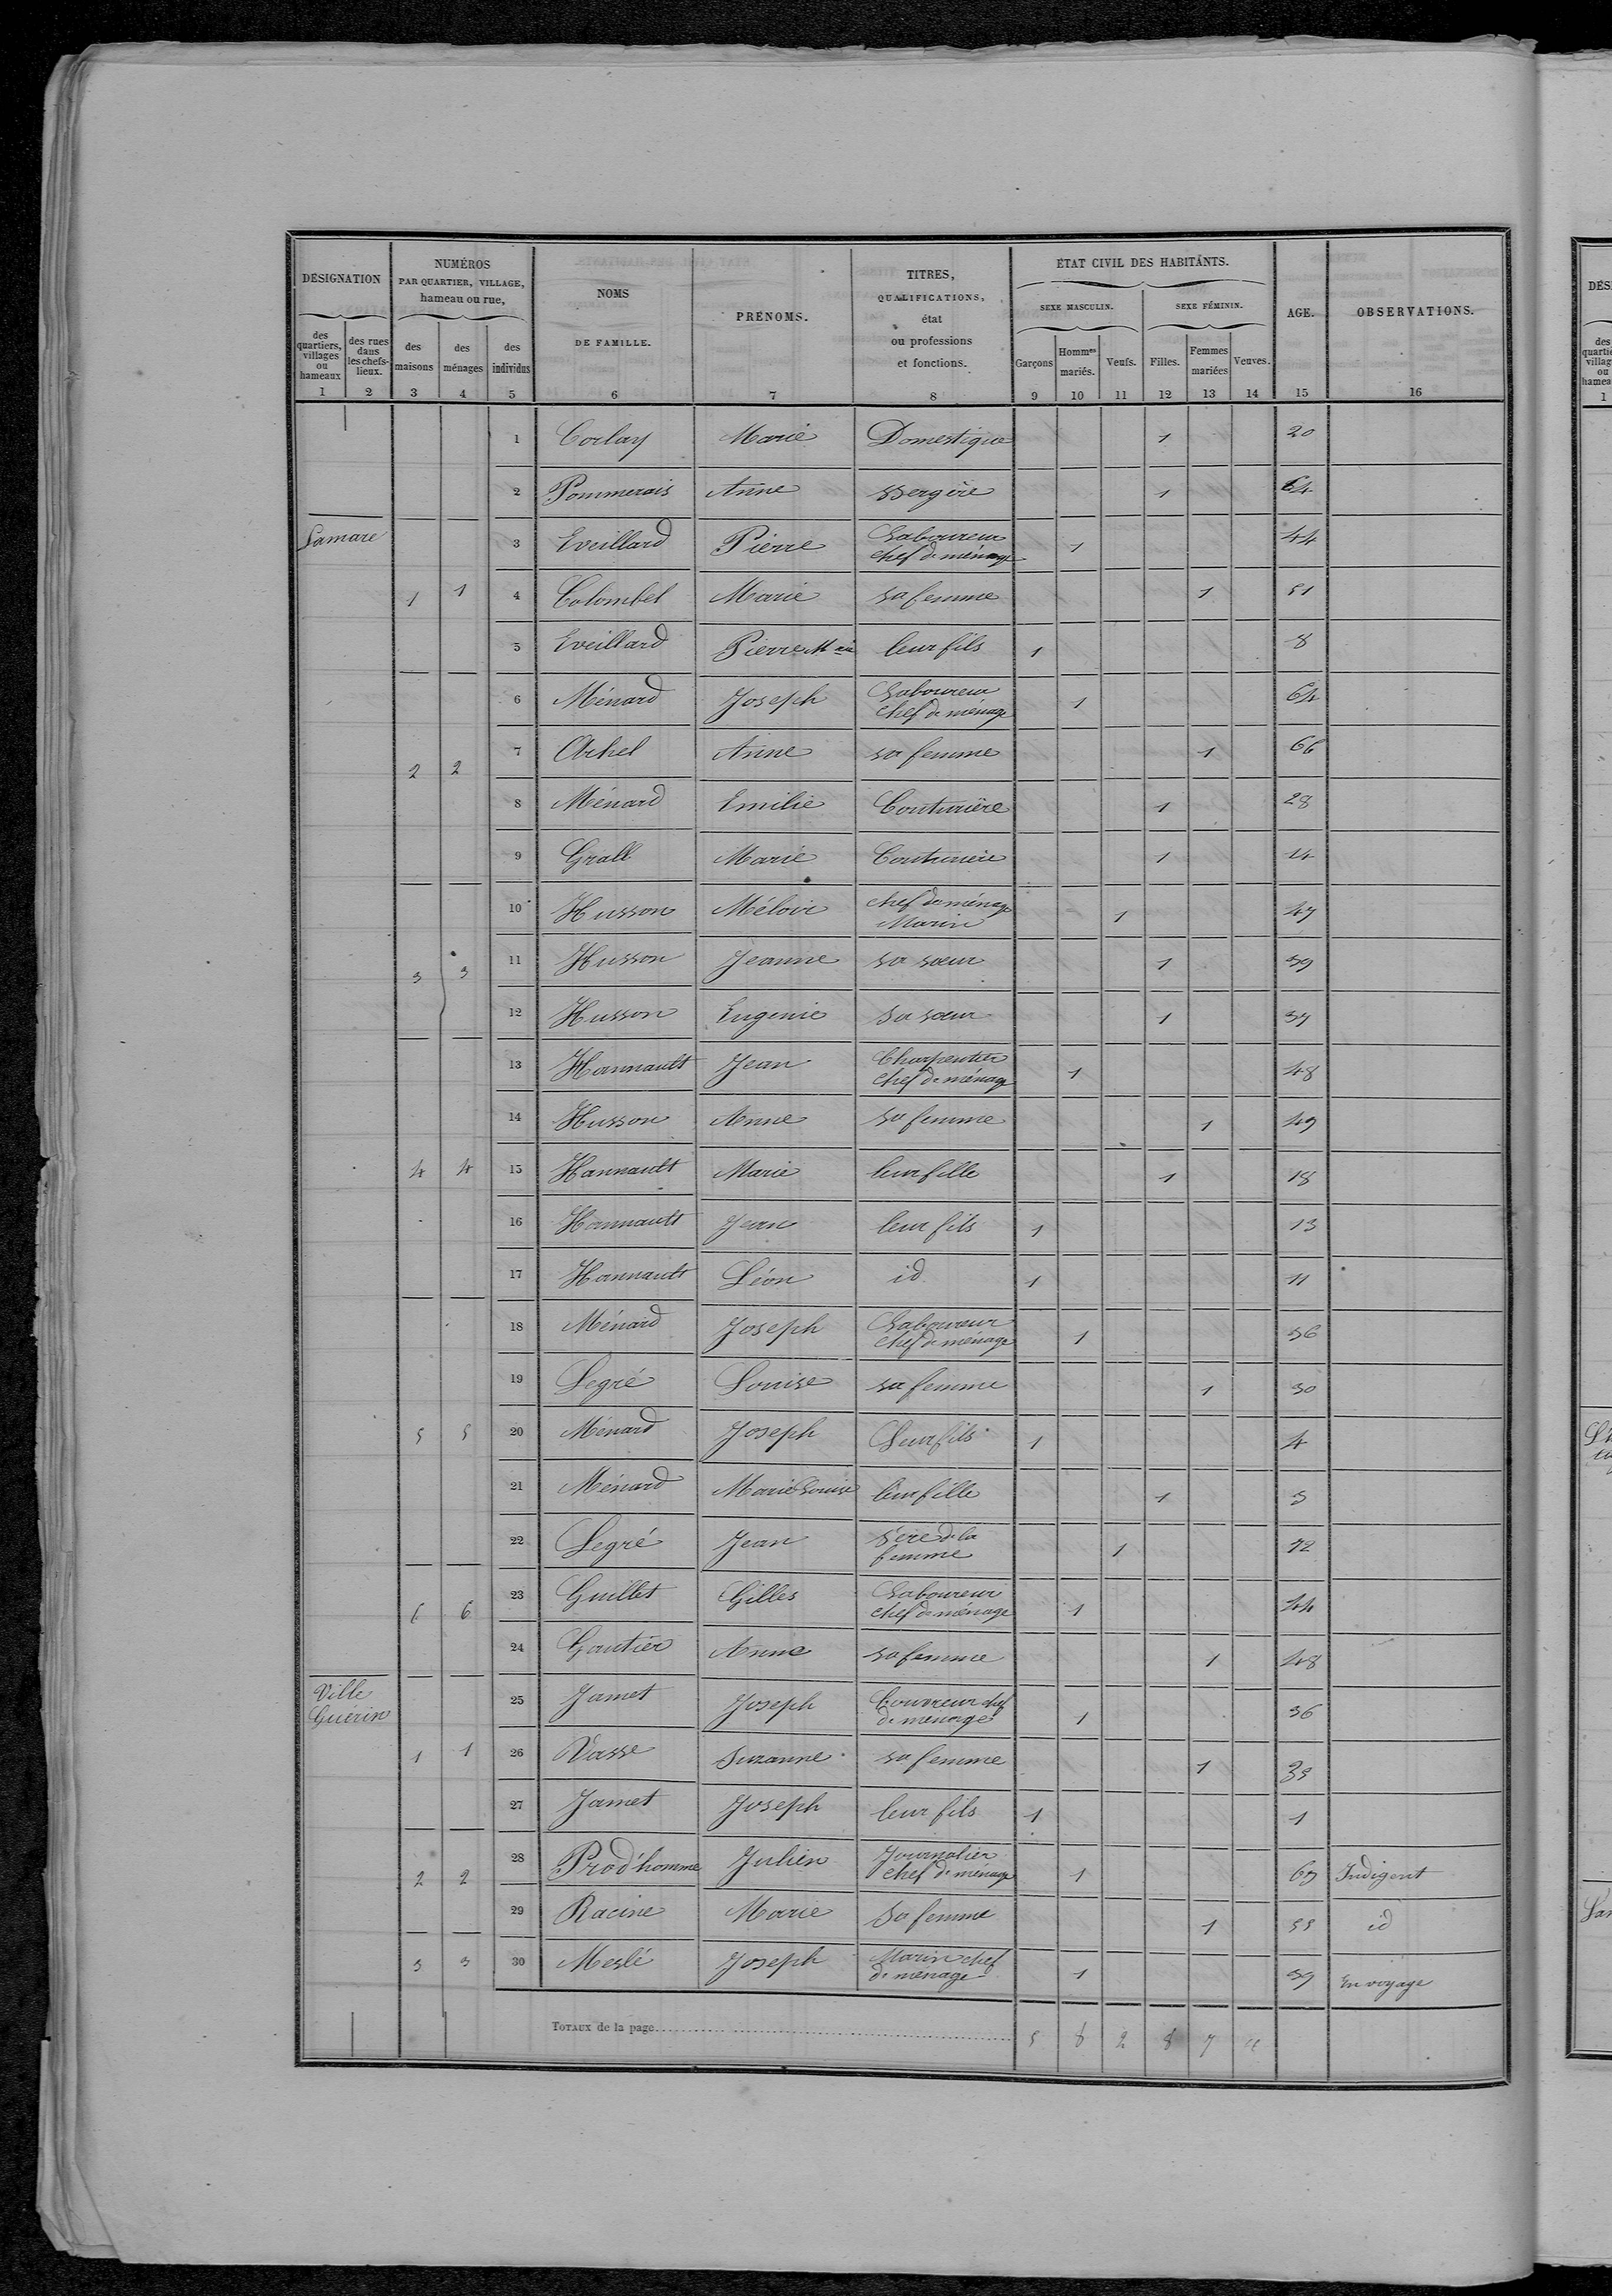 DÉSIGNATION
NUMÉROS
PAR QUARTIER, VILLAGE,
hameau ou rue,
NOMS
DE FAMILLE.
PRÉNOMS.
TITRES,
QUALIFICATIONS,
état
ou professions
et fonctions.
ÉTAT CIVIL DES HABITANTS.
SEXE MASCULIN.
SEXE FÉMININ.
AGE.
OBSERVATIONS.
des quartiers, villages ou hameaux
des rues dans les chefs-lieux.
des maisons
des ménages
des individus
Garçons
Hommes mariés.
Veufs.
Filles.
Femmes mariées
Veuves.
1 2 3 4 5 6 7 8 9 10 11 12 13 14 15 16
1 Corlay Marie Domestique 1 20
2 Pommerais Anne Bergère 1 64
Lamare 3 Eveillard Pierre Laboureur chef de ménage 1 44
1 1 4 Colombel Marie sa femme 1 51
5 Eveillard Pierre Mie leur fils 1 8
6 Ménard Joseph Laboureur chef de ménage 1 64
2 2 7 Achel Anne sa femme 1 66
8 Ménard Emilie Couturière 1 28
9 Grall Marie Couturière 1 14
10 Husson Méloir chef de ménage Marin 1 47
3 3 11 Husson Jeanne sa sœur 1 39
12 Husson Eugenie sa sœur 1 37
13 Hannault Jean Charpentier chef de ménage 1 48
14 Husson Anne sa femme 1 49
4 4 15 Hannault Marie leur fille 1 18
16 Hannault Jean leur fils 1 13
17 Hannault Léon id 1 11
18 Ménard Joseph Laboureur chef de ménage 1 36
19 Legré Louise sa femme 1 30
5 5 20 Ménard Joseph Leur fils 1 4
21 Ménard Marie Louise leur fille 1 3
22 Legré Jean Père de la femme 1 72
6 6 23 Guillet Gilles Laboureur chef de ménage 1 44
24 Gautier Anne sa femme 1 48
Ville Guérin 25 Jamet Joseph Couvreur chef de ménage 1 36
1 1 26 Vasse Suzanne sa femme 1 35
27 Jamet Joseph leur fils 1 1
2 2 28 Prod'homme Julien Journalier chef de ménage 1 Indigent
29 Racine Marie Sa femme 1 55 id
3 3 30 Meslé Joseph Marin chef de ménage 1 39 En voyage
TOTAUX de la page 5 8 2 8 7 "